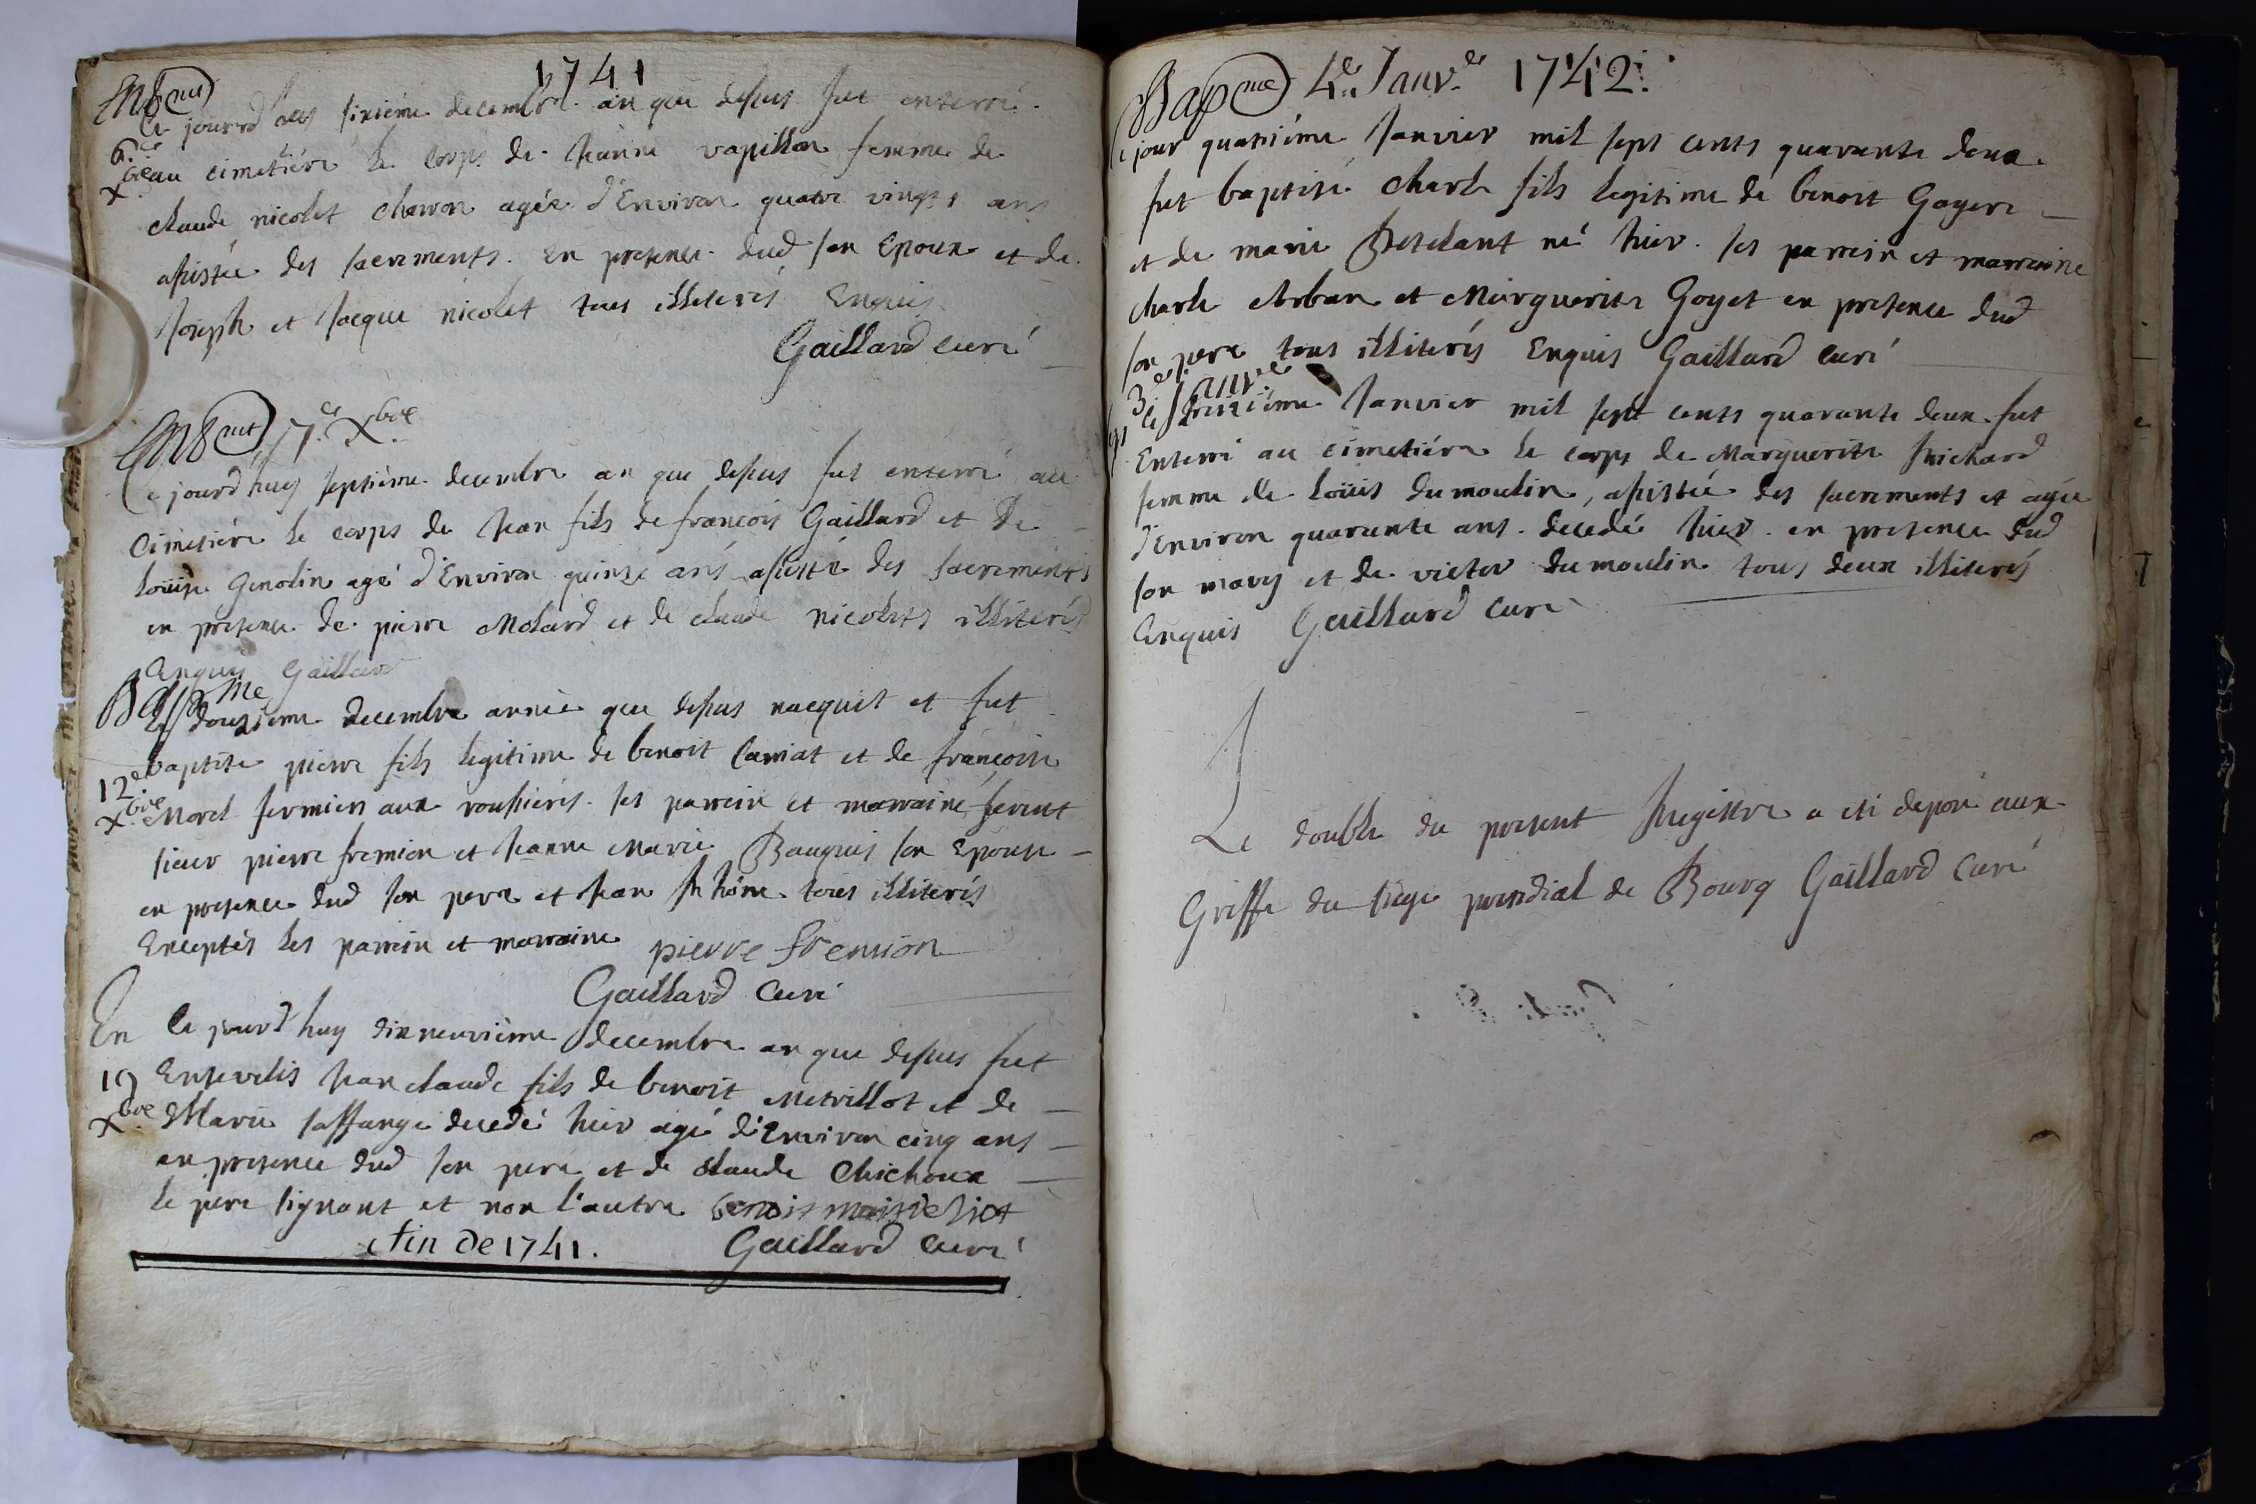 1741
Ent.ment
Ce jourd huy sixiéme decembre. an que dessus fut enterré.
6.e
xbre
au cimetiére le corps de. Jeanne vapillon femme de
claude nicolet charron agée d'Environ quatre vingts ans
assistée des sacrements. En presence. dud son Epoux et de.
Joseph et Jacque nicolet tous illiterés Enquis
Gaillard curé
Ent.ment 7.e Xbre
Ce jourd'huy septième. decembre an que dessus fut enterré au
Cimetiére le corps de Jean fils de francois Gaillard et De
Loüise Genolin agé d'Environ quinze ans assisté des sacrements
en presence. De. pierre Molard et de claude nicolets illiterés
Enquis Gaillard
Bapme
Ce douzieme decembre année que dessus nacquit et fut
baptise pierre fils legitime de benoit Carriat et de françoise
12.e
xbre
Morel fermiers aux roussieres. ses parrein et marraine furent
sieur pierre fremion et Jeanne Marie Bauquis son Epouse
en presence dud son pere et Jean tous illiterés
Exceptés les parrein et marraine pierre fremion
Gaillard Curé
En Ce jourd'huy dixneuvième decembre an que dessus fut
19
xbre
Ensevelis Jean claude fils de benoit Metrillot et de
Marie saffange decedé hier agé d'Environ cinq ans
en presence dud son pere et de Claude Chichoux
le pere signant et non l'autre benois
fin de 1741. Gaillard curé
Bapme 4.e Janv.er 1742.
Ce jour quatriéme Janvier mil sept cents quarante deux.
fut baptisé Charle fils legitime de benoit Goyere
et de marie Betelant né hier. ses parrein et marreine
charle Arban et Marguerite Goyet en presence dud
son pere tous illiterés Enquis Gaillard curé
Janvier mil sept cents quarante deux. fut
Enterré au cimetiére le corps de Marguerite Richard
femme de Loüis Dumoulin, assistée des sacrements et agée
d'Environ quarante ans. decedé hier. en presence dud
son mary et de victor Dumoulin tous deux illiterés
Enquis Gaillard Curé
Le double du present Registre a eté deposé aux
Griffe du siege presidial de Bourg Gaillard Curé